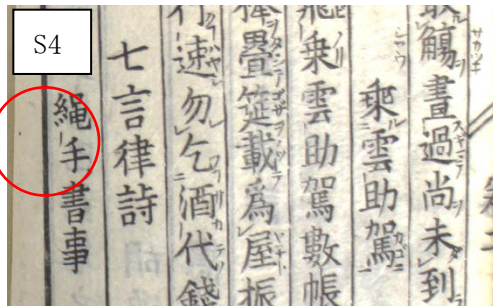 S4
觴晝過尚未到
乘雲助駕
飛乘雲助駕數帳
棒疊筵載爲屋振
行速勿乞酒代錢
七言律詩
繩手書事